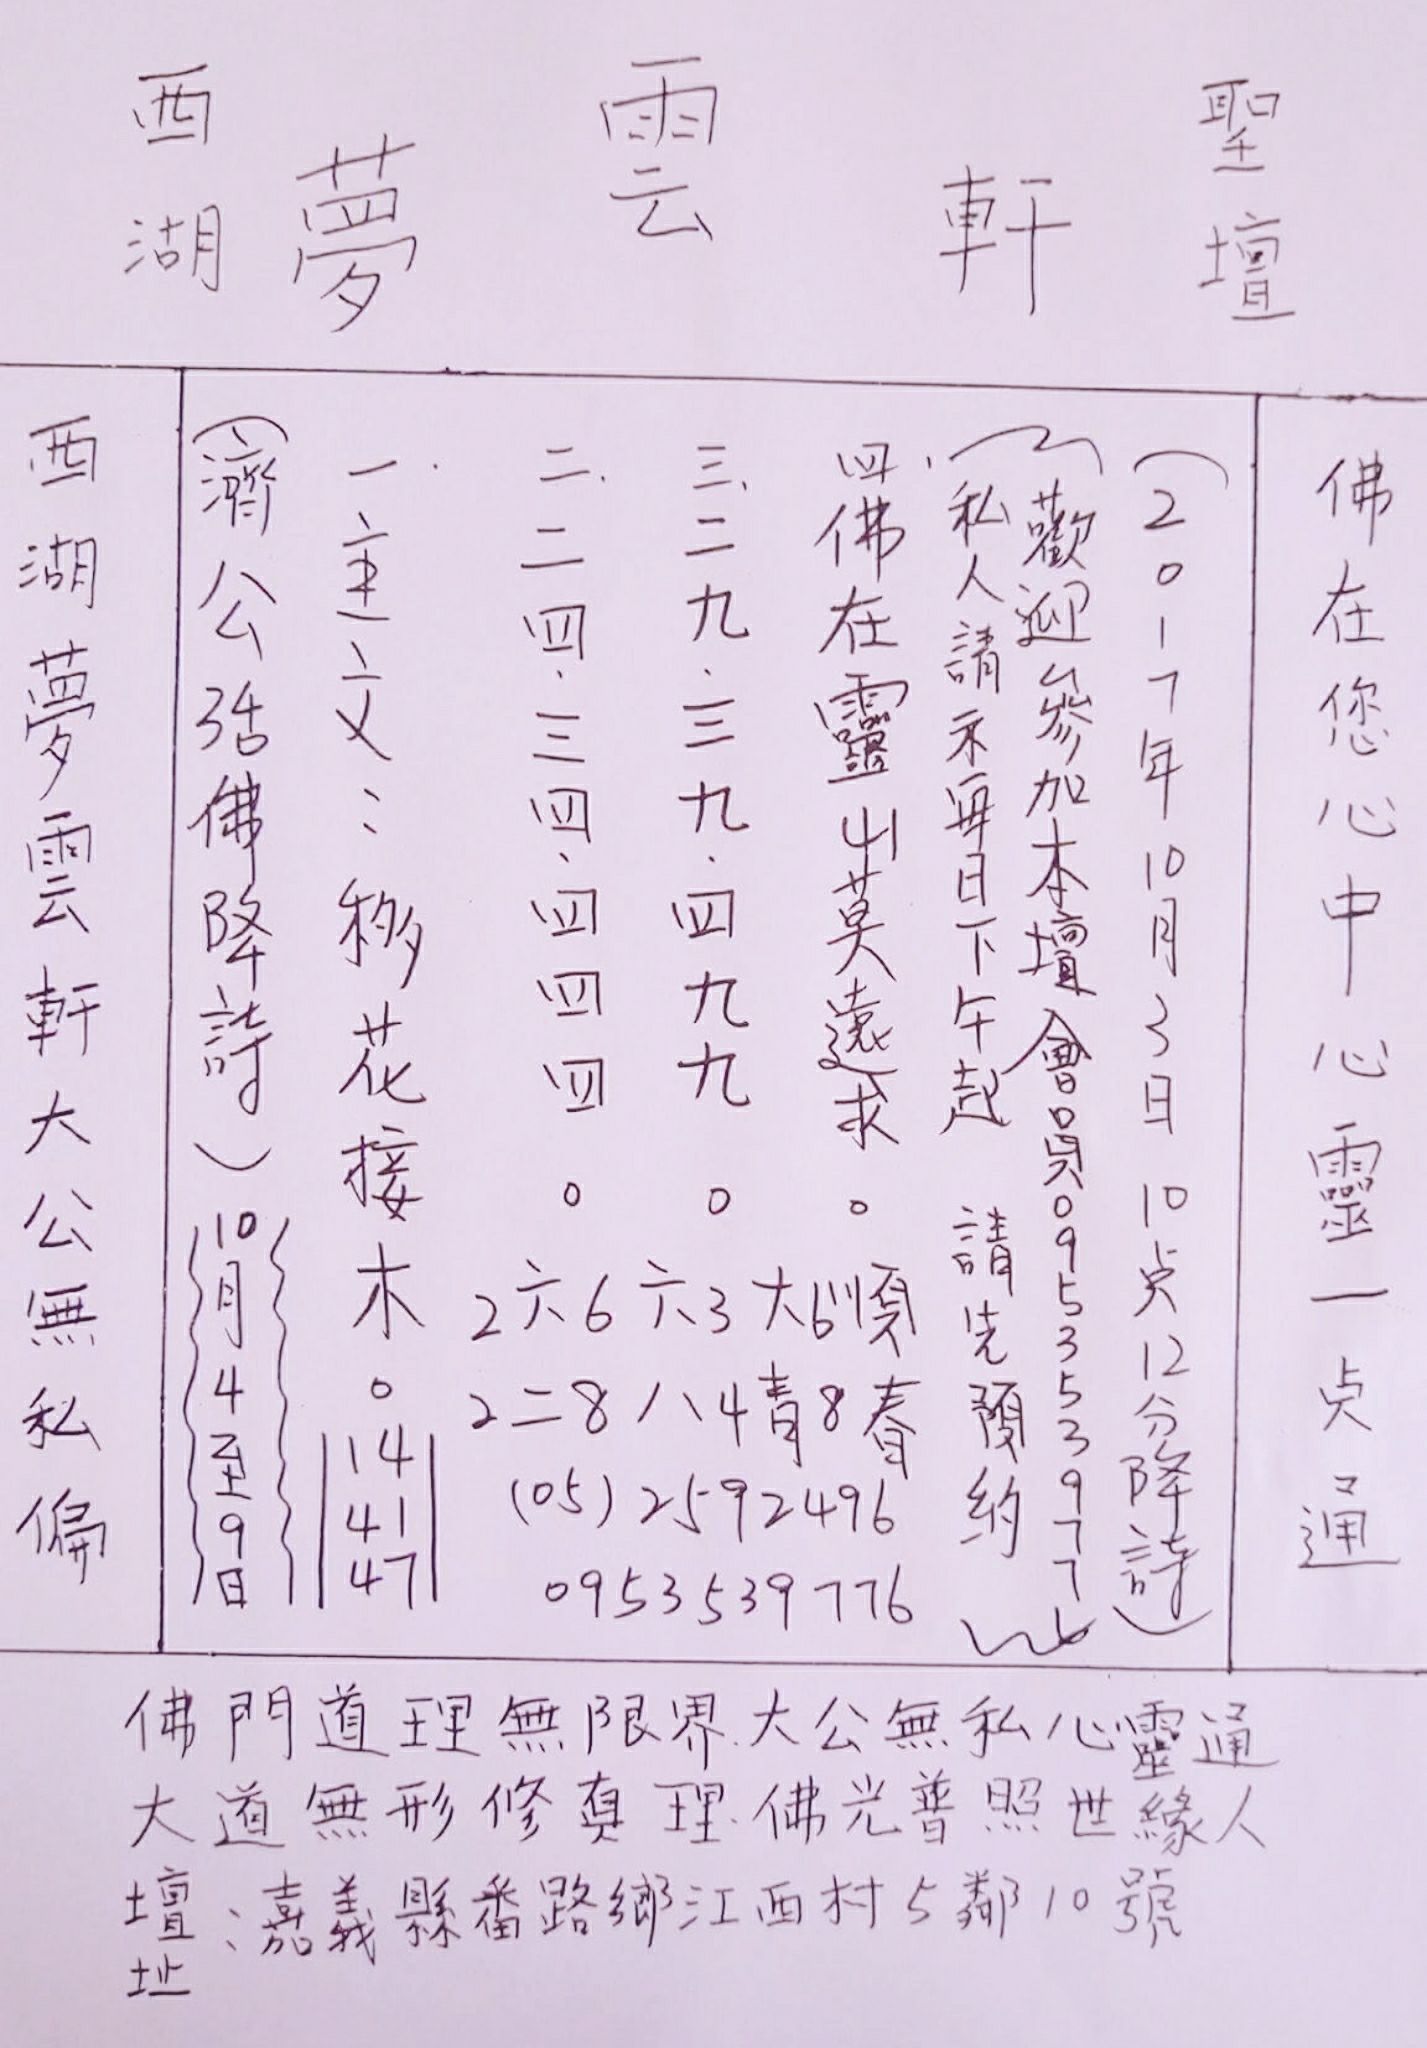 西湖 夢雲軒 聖壇
佛在您心中心靈一点通
(2017年10月3日10点12分降詩)
(歡迎參加本壇會員0953539776
私人請示每日下午起 請先預約)
四.佛在靈山莫遠求。
三.二九.三九.四九九。
二.二四.三四.四四四。
一.主文:移花接木。
14
41
47
(濟公活佛降詩)
10月4至9日
2六6六3大6順
2二8八4青8春
(05)2592496
0953539776
西湖夢雲軒大公無私偏
佛門道理無限界.大公無私心靈通
大道無形修真理.佛光普照世緣人
壇址:嘉義縣番路鄉江西村5鄰10號